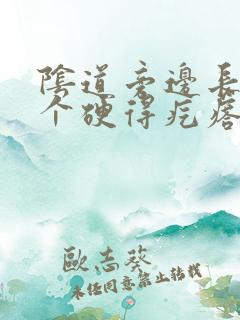 陰道旁邊長
个硬得疙瘩
歐志葵
未经同意禁止转载